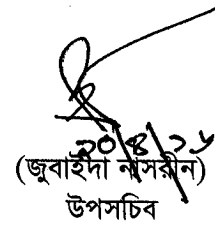 ২০/৪/২৬
(জুবাইদা নাসরীন)
উপসচিব